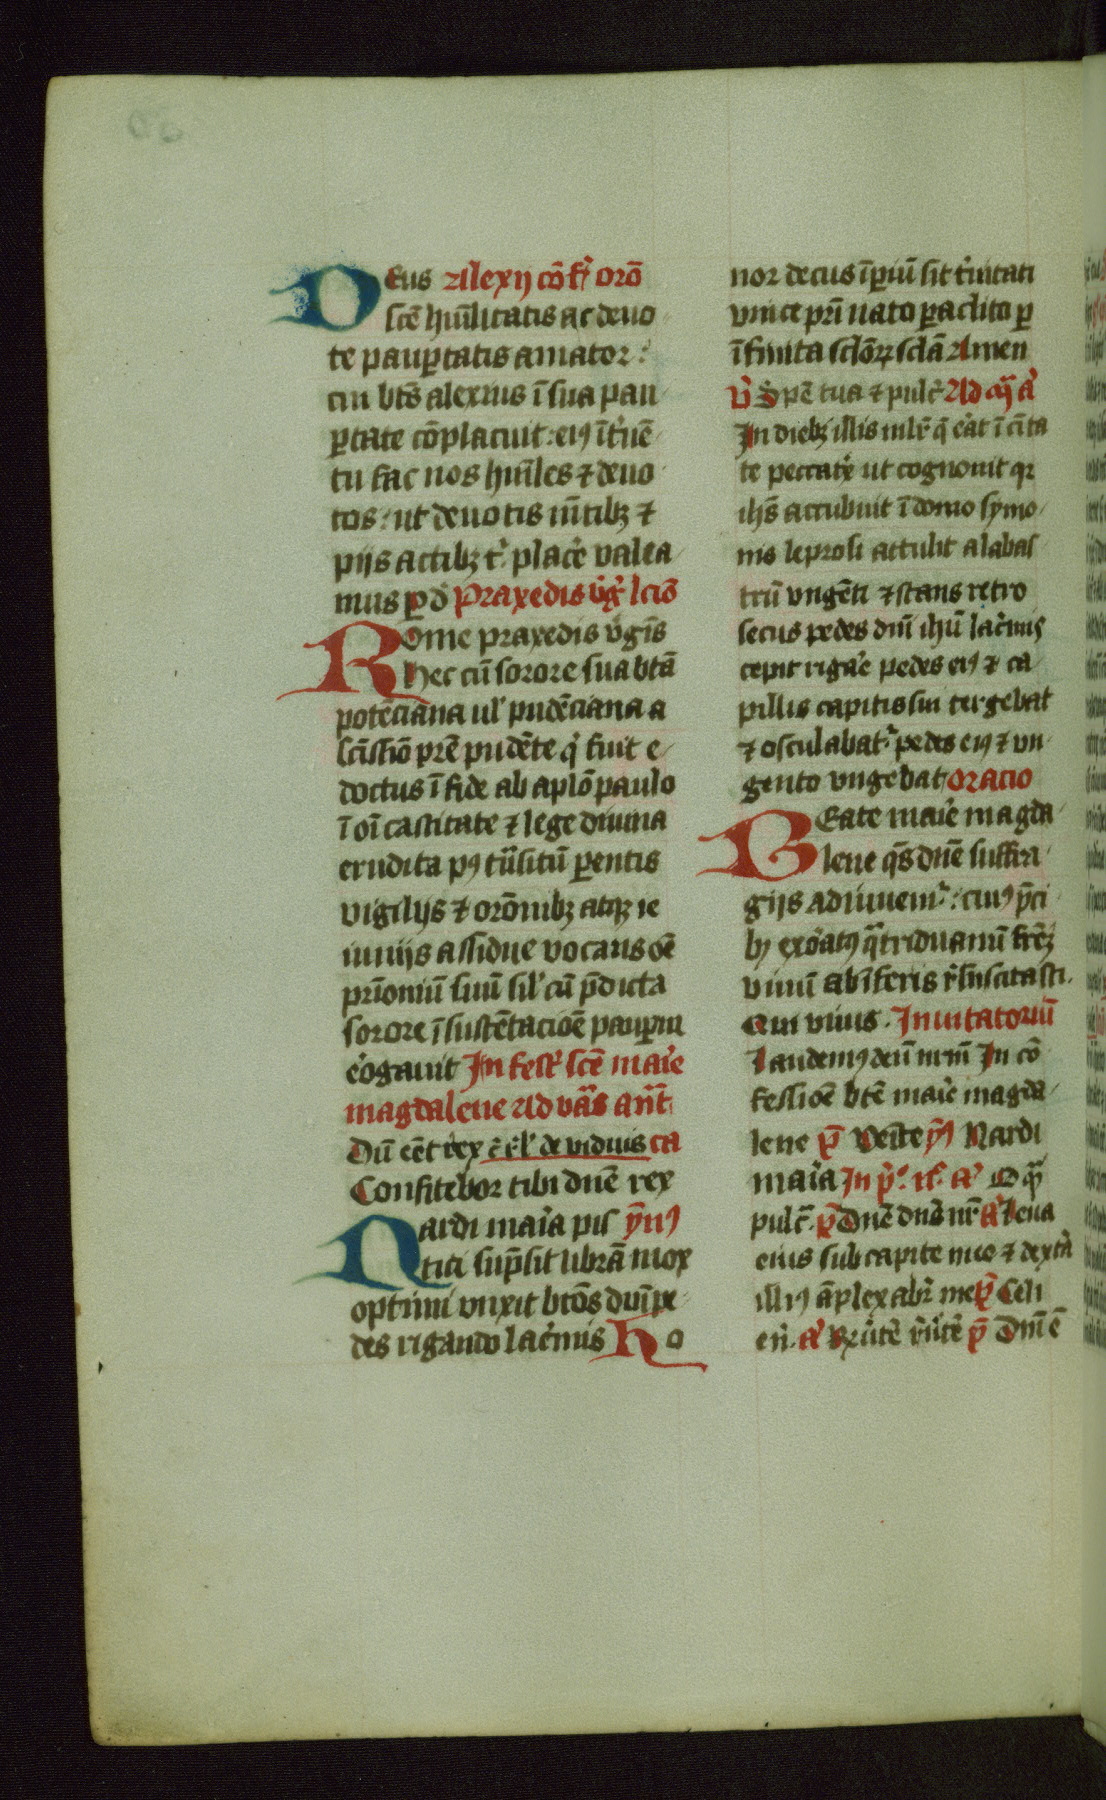 Deus Alexij cōfʳ orō
scē hūilitatis ac deuo
te paup̄tatis amator:
cui btūs alexius ī sua pau
p̄tate cōplacuit: eiꝰ īt̓uē
tu fac nos hūiles ⁊ deuo
tos: ut deuotis mētibꝫ ⁊
pijs actibꝫ t̓ plac̓e valea
mus p̄ d̄ Praxedis v̓g̓ lc̄io
Rome praxedis v̓gīs
hec cū sorore sua btā
potēciana ul' pudēciana a
sc̄issīo pr̄e pudēte q̓ fuit e
doctus ī fide ab aplō paulo
ī oī castitate ⁊ lege diuina
erudita pꝰ t̄nsitū p̄entis
vigilijs ⁊ orōnibꝫ atqꝫ ie
iunijs assidue vocans oē
pr̄ioniū suū sil' cū p̄dicta
sorore ī sustētacioē paup̄m
e̓ogauit In fest̓ scē mar̓e
magdalene Ad vās ant̄
Dū eēt rex ē fl' de viduis ca
Confitebor tibi dn̄e rex
Nardi mar̓a pis ym̄ꝰ
tici sūpsit librā mox
optimi vnxit btōs dn̄i pe
des rigando lac̓mis Ho
nor decus īp̄iū sit t̓nitati
vnice pr̄i nato p̄aclito p̄
īfinita sclōꝝ sclā Amen
v̓ Spē tua ⁊ pulc̓ Ad mᷓ a̓
In diebꝫ illis mlr̓ q̄ e̓at ī ciīta
te peccat̓x ut cognouit qꝛ
ihs̄ accubuit ī domo symo
nis leprosi attulit alabas
trū vngēti ⁊ stans retro
secus pedes dn̄i ihū lac̓mis
cepit riga̓e pedes eiꝰ ⁊ ca
pillis capitis sui tergebat
⁊ osculabat̓ pedes eiꝰ ⁊ vn
gento vngebat Oracio
Beate mar̓e magda
lene qs̄ dn̄e suffra
gijs adiuuem̓: cuiꝰ p̄ci
bꝰ exo̓atꝰ qᷓtriduanū fr̄eꝫ
viuū ab īferis r̓suscitasti
Qui viuis. Inuitatoriū
Laudemꝰ deū nr̄m In cō
fessioē btē mar̓e magda
lene p̄ Veīte ym̄ꝰ Nardi
mar̓a In p̓. n̄. a̓ O qᷓ
pulc̓. p̄ Dn̄e dn̄s nr̄ a̓ Leua
eius sub capite meo ⁊ dext̓a
illiꝰ āplexabr̄ me p̄ Celi
en̄. a̓ Rūtē r̓ūtē p̄ Dn̄i ē